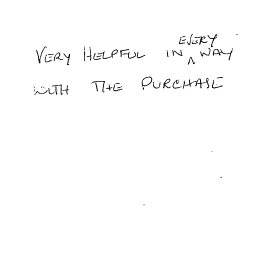 VERY HELPFUL IN EVERY WAY
WITH THE PURCHASE